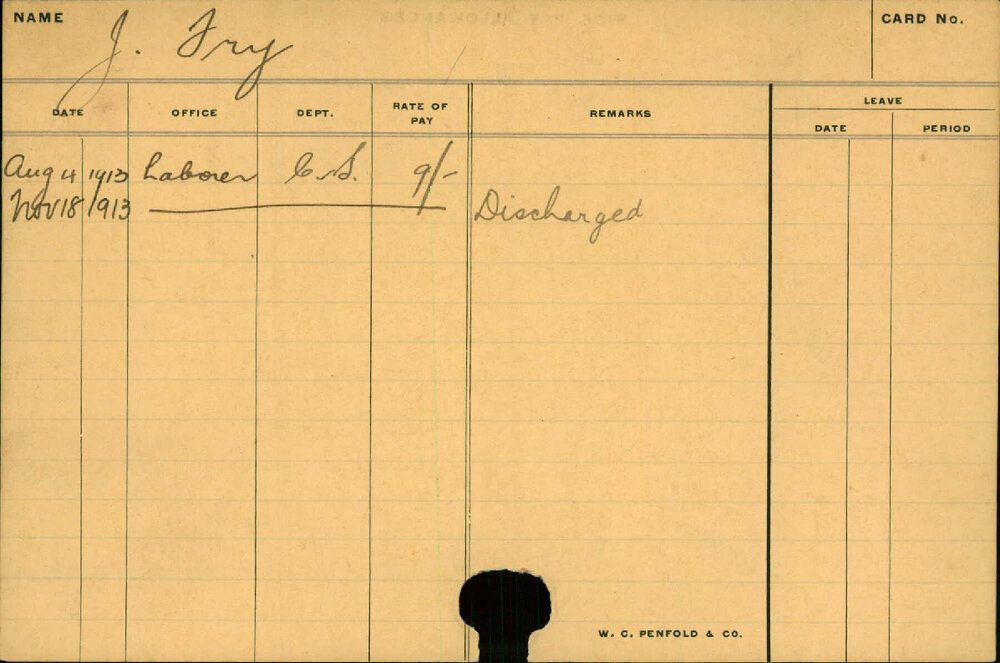 NAME J. Fry CARD No.
DATE OFFICE DEPT. RATE OF PAY REMARKS LEAVE
DATE PERIOD
Aug 4 1913 Laborer C.S. 9/-
Nov 18 1913 Discharged
W. C. PENFOLD & CO.